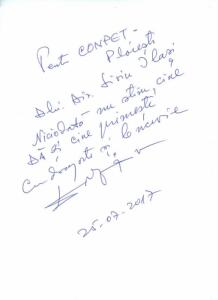 Pentru CONPET -
Ploiești
Dlui Dir. Liviu Ilași
Niciodată nu știm, cine
DĂ și cine primește
Cu dragoste și bucurie
25.07.2017